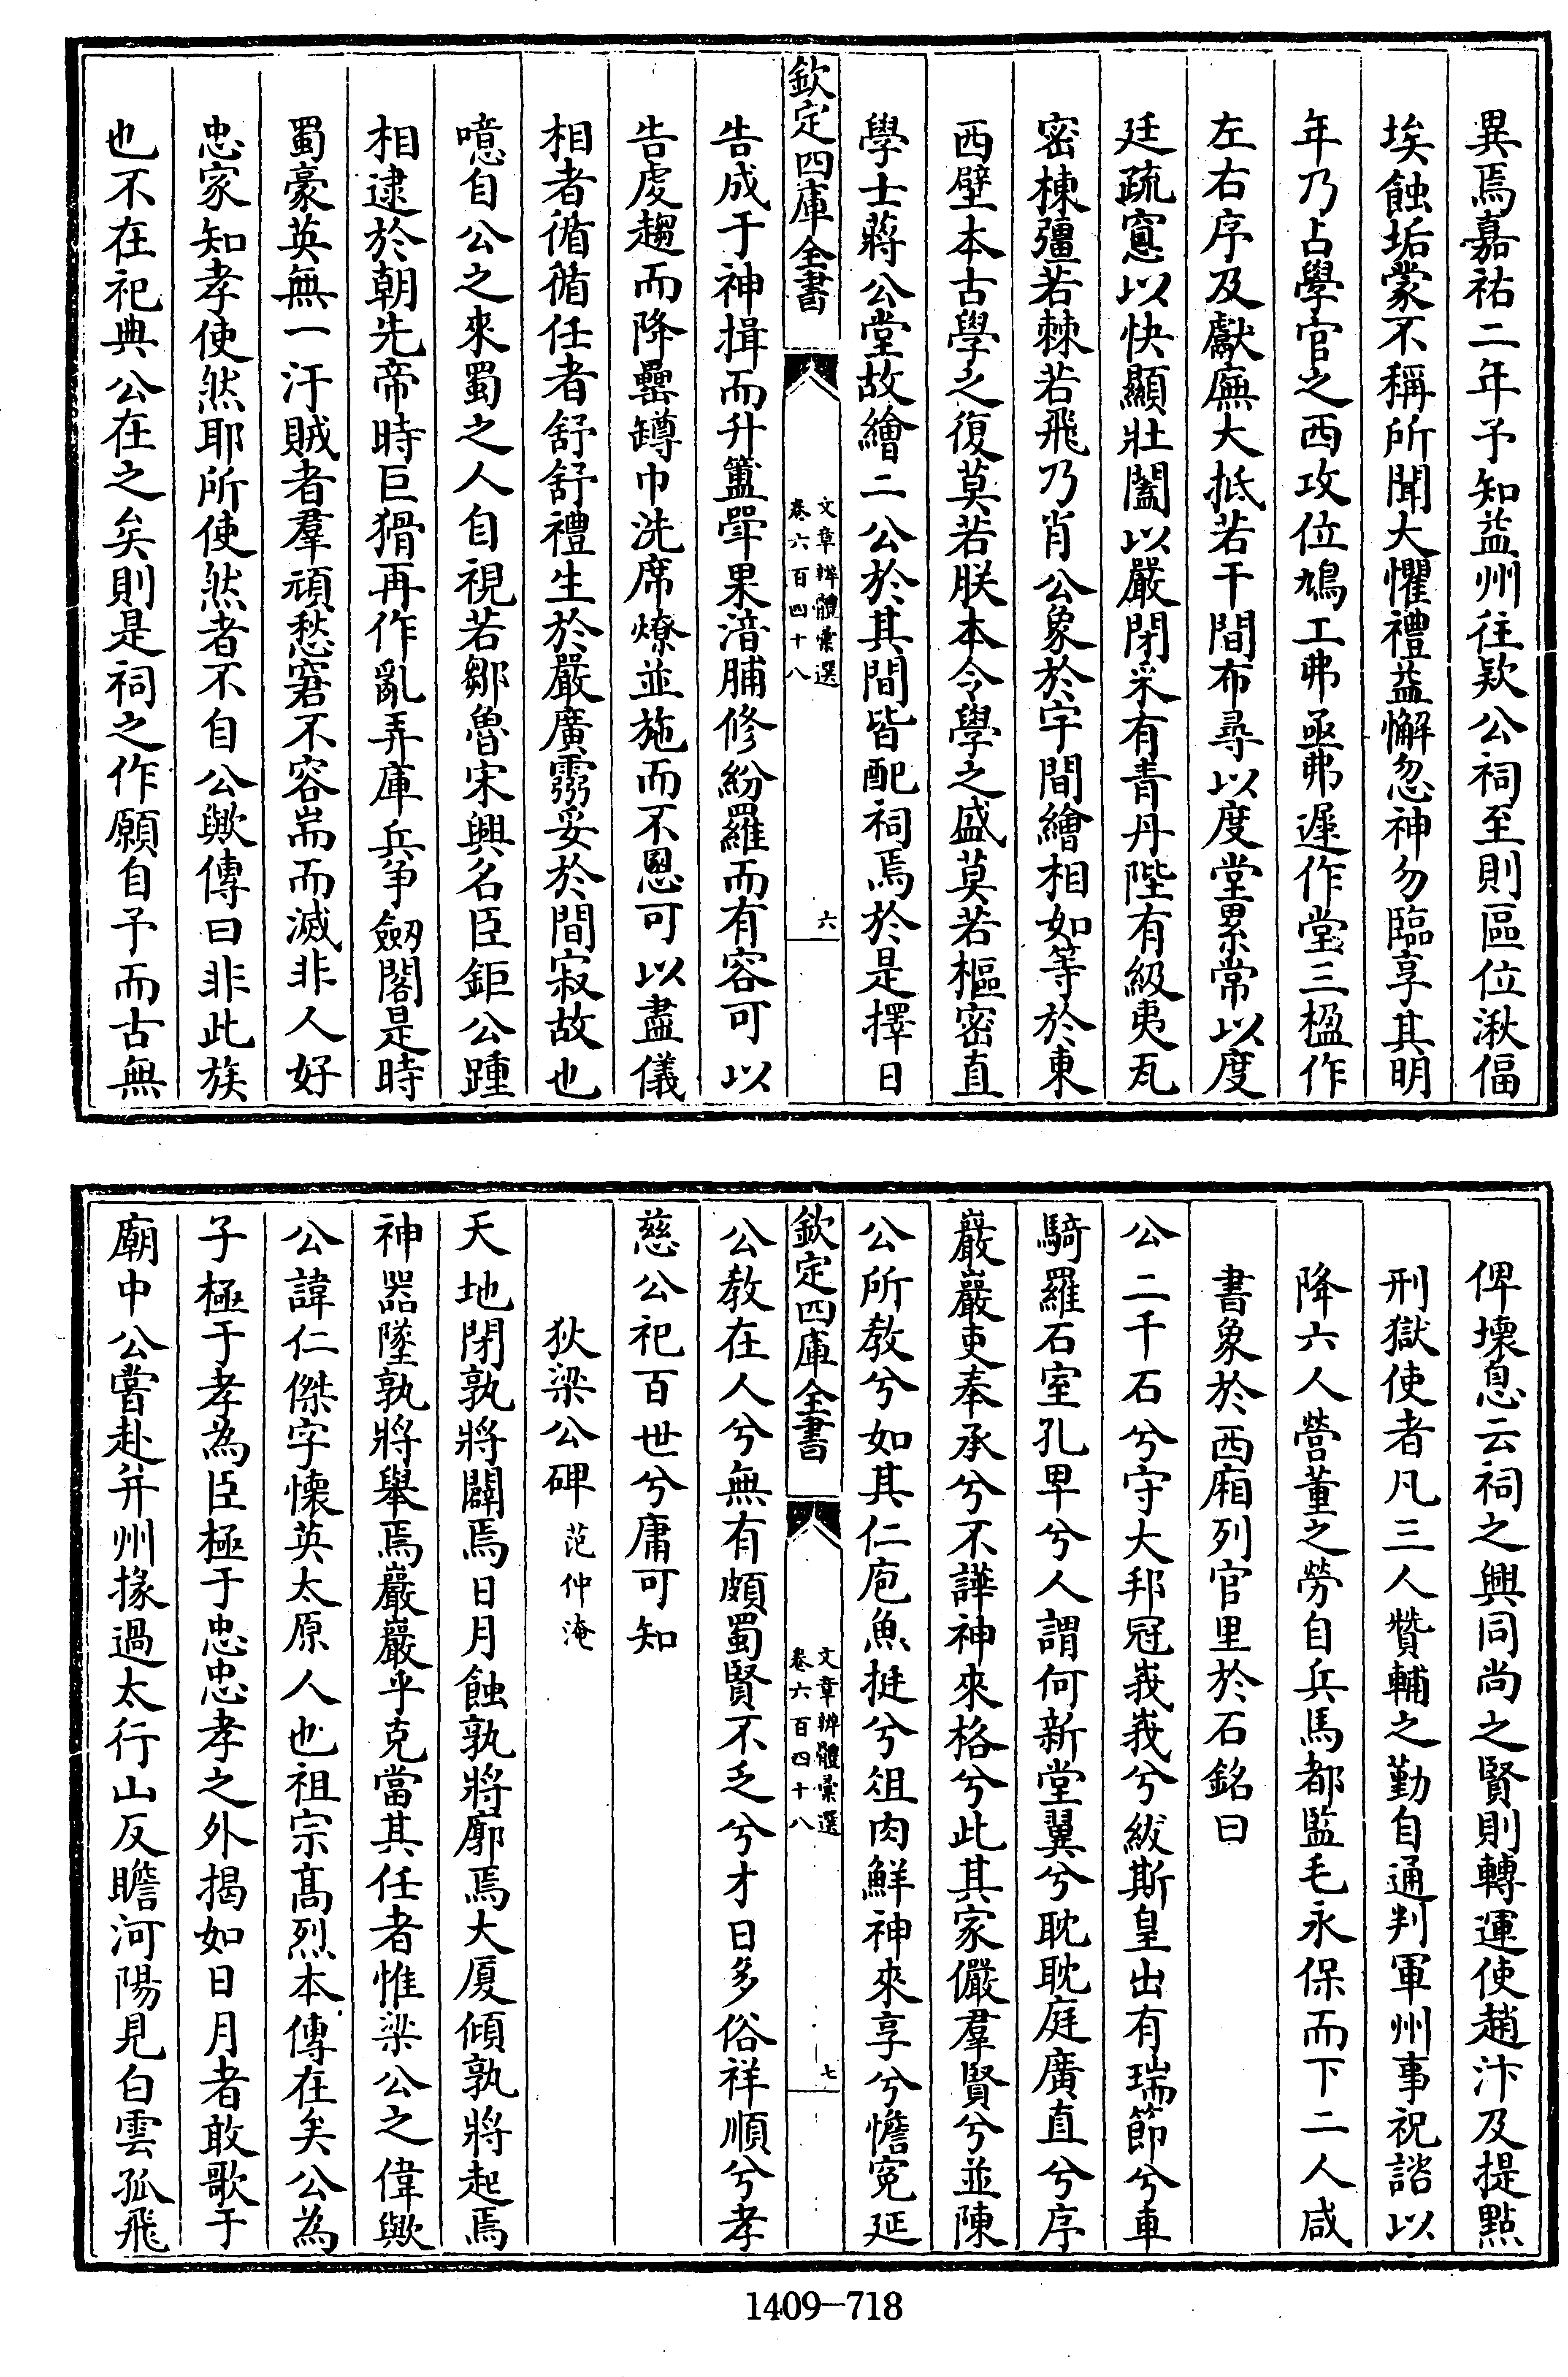 異焉嘉祐二年予知益州往欵公祠至則區位湫偪
埃蝕垢蒙不稱所聞大懼禮益懈忽神勿臨享其明
年乃占學官之西攻位鳩工弗亟弗遲作堂三楹作
左右序及獻廡大抵若干間布尋以度堂累常以度
廷疏窻以快顯壯闔以嚴閉采有青丹陛有級夷瓦
密棟彊若棘若飛乃肖公象於宇間繪相如等於東
西壁本古學之復莫若朕本令學之盛莫若樞密直
學士蔣公堂故繪二公於其間皆配祠焉於是擇日
欽定四庫全書
文章辨體彙選
卷六百四十八
六
告成于神揖而升簠斝果湆脯修紛羅而有容可以
告虔趨而降罍罇巾洗席燎並施而不慁可以盡儀
相者循循任者舒舒禮生於嚴廣霛妥於間寂故也
噫自公之來蜀之人自視若鄒魯宋興名臣鉅公踵
相逮於朝先帝時巨猾再作亂弄庫兵爭劒閣是時
蜀豪英無一汙賊者羣頑愁窘不容耑而滅非人好
忠家知孝使然耶所使然者不自公歟傳曰非此族
也不在祀典公在之矣則是祠之作願自予而古無
俾壞息云祠之興同尚之賢則轉運使趙汴及提點
刑獄使者凡三人贊輔之勤自通判軍州事祝諮以
降六人營董之勞自兵馬都監毛永保而下二人咸
書象於西廂列官里於石銘曰
公二千石兮守大邦冠峩峩兮紱斯皇出有瑞節兮車
騎羅石室孔卑兮人謂何新堂翼兮耽耽庭廣直兮序
嚴嚴吏奉承兮不譁神來格兮此其家儼羣賢兮並陳
公所教兮如其仁庖魚挺兮俎肉鮮神來享兮憺宛延
欽定四庫全書
文章辨體彙選
卷六百四十八
七
公教在人兮無有頗蜀賢不乏兮才日多俗祥順兮孝
慈公祀百世兮庸可知
狄梁公碑 范仲淹
天地閉孰將闢焉日月蝕孰將廓焉大厦傾孰將起焉
神器墜孰將舉焉巖巖乎克當其任者惟梁公之偉歟
公諱仁傑字懷英太原人也祖宗髙烈本傳在矣公為
子極于孝為臣極于忠忠孝之外揭如日月者敢歌于
廟中公嘗赴并州掾過太行山反瞻河陽見白雲孤飛
1409－718